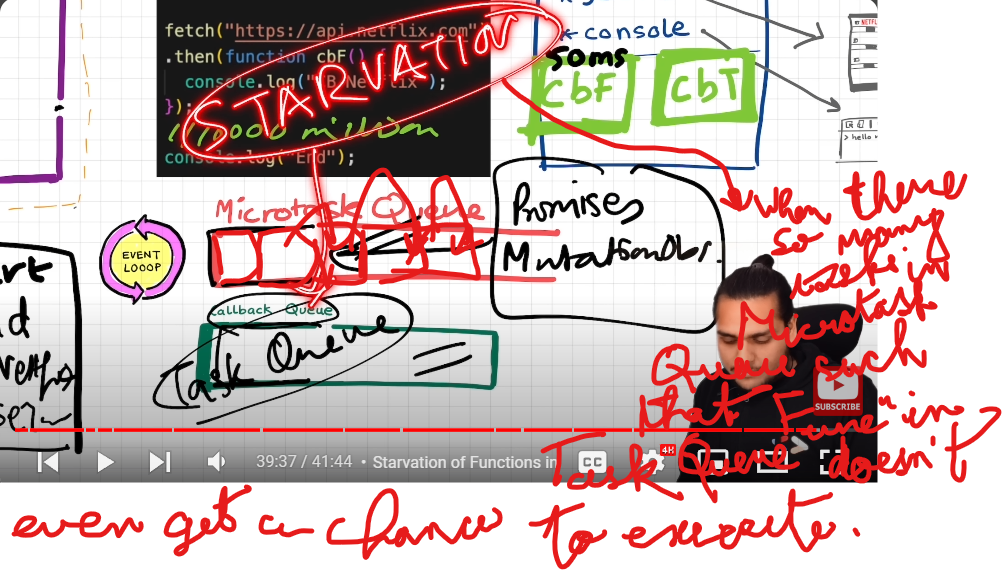 fetch("https://api.netflix.com"
.then(function cbF() {
console.log("
});
million
console.log("End");
STARVATION
console
50ms
CbF
CbT
hello
Microtask Queue
Promises
MutationObr.
EVENT
LOOOP
Callback Queue
Task Queue
when there
so many
tasks in
Microtask
Queue such
that Func" in
Task Queue doesn't
even get a chance to execute.
SUBSCRIBE
39:37 / 41:44 • Starvation of Functions in
CC
4K